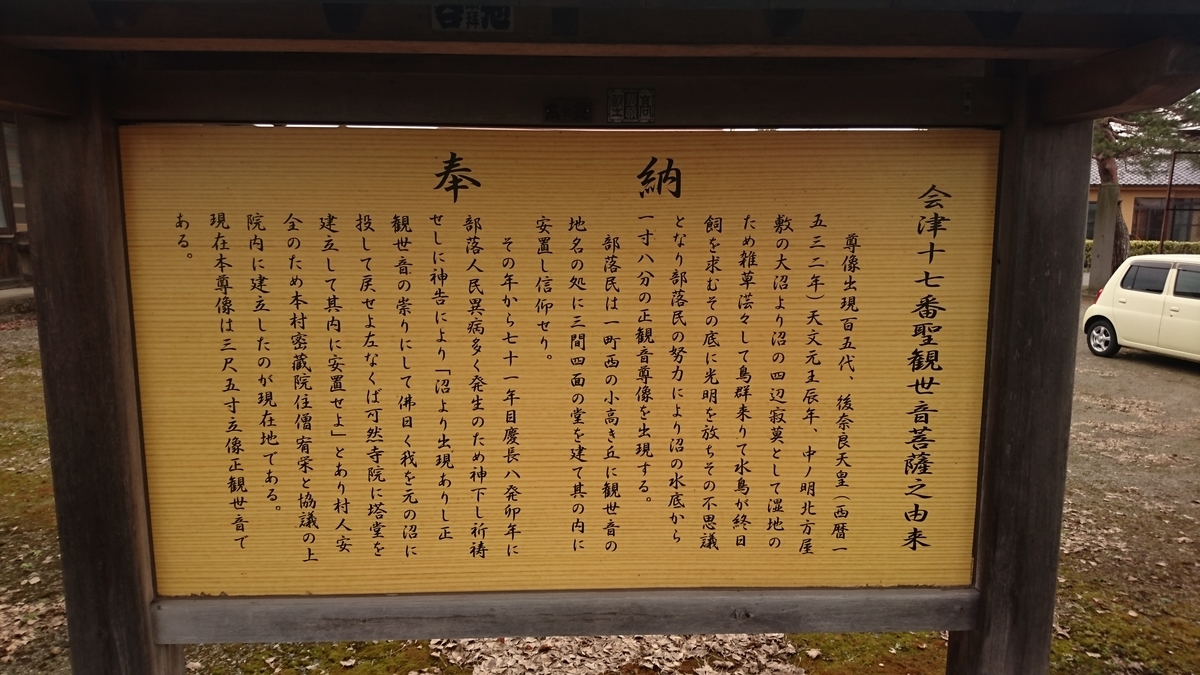 奉納
会津十七番聖観世音菩薩之由来
尊像出現百五代、後奈良天皇(西暦一
五三二年)天文元壬辰年、中ノ明北方屋
敷の大沼より沼の四辺寂莫として湿地の
ため雑草茫々して鳥群来りて水鳥が終日
飼を求むその底に光明を放ちその不思議
となり部落民の努力により沼の水底から
一寸八分の正観音尊像を出現する。
部落民は一町西の小高き丘に観世音の
地名の処に三間四面の堂を建て其の内に
安置し信仰せり。
その年から七十一年目慶長八発卯年に
部落人民異病多く発生のため神下し祈祷
せしに神告により「沼より出現ありし正
観世音の祟りにして佛曰く我を元の沼に
投して戻せよ左なくば可然寺院に塔堂を
建立して其内に安置せよ」とあり村人安
全のため本村密蔵院住僧宥栄と協議の上
院内に建立したのが現在地である。
現在本尊像は三尺五寸立像正観世音で
ある。